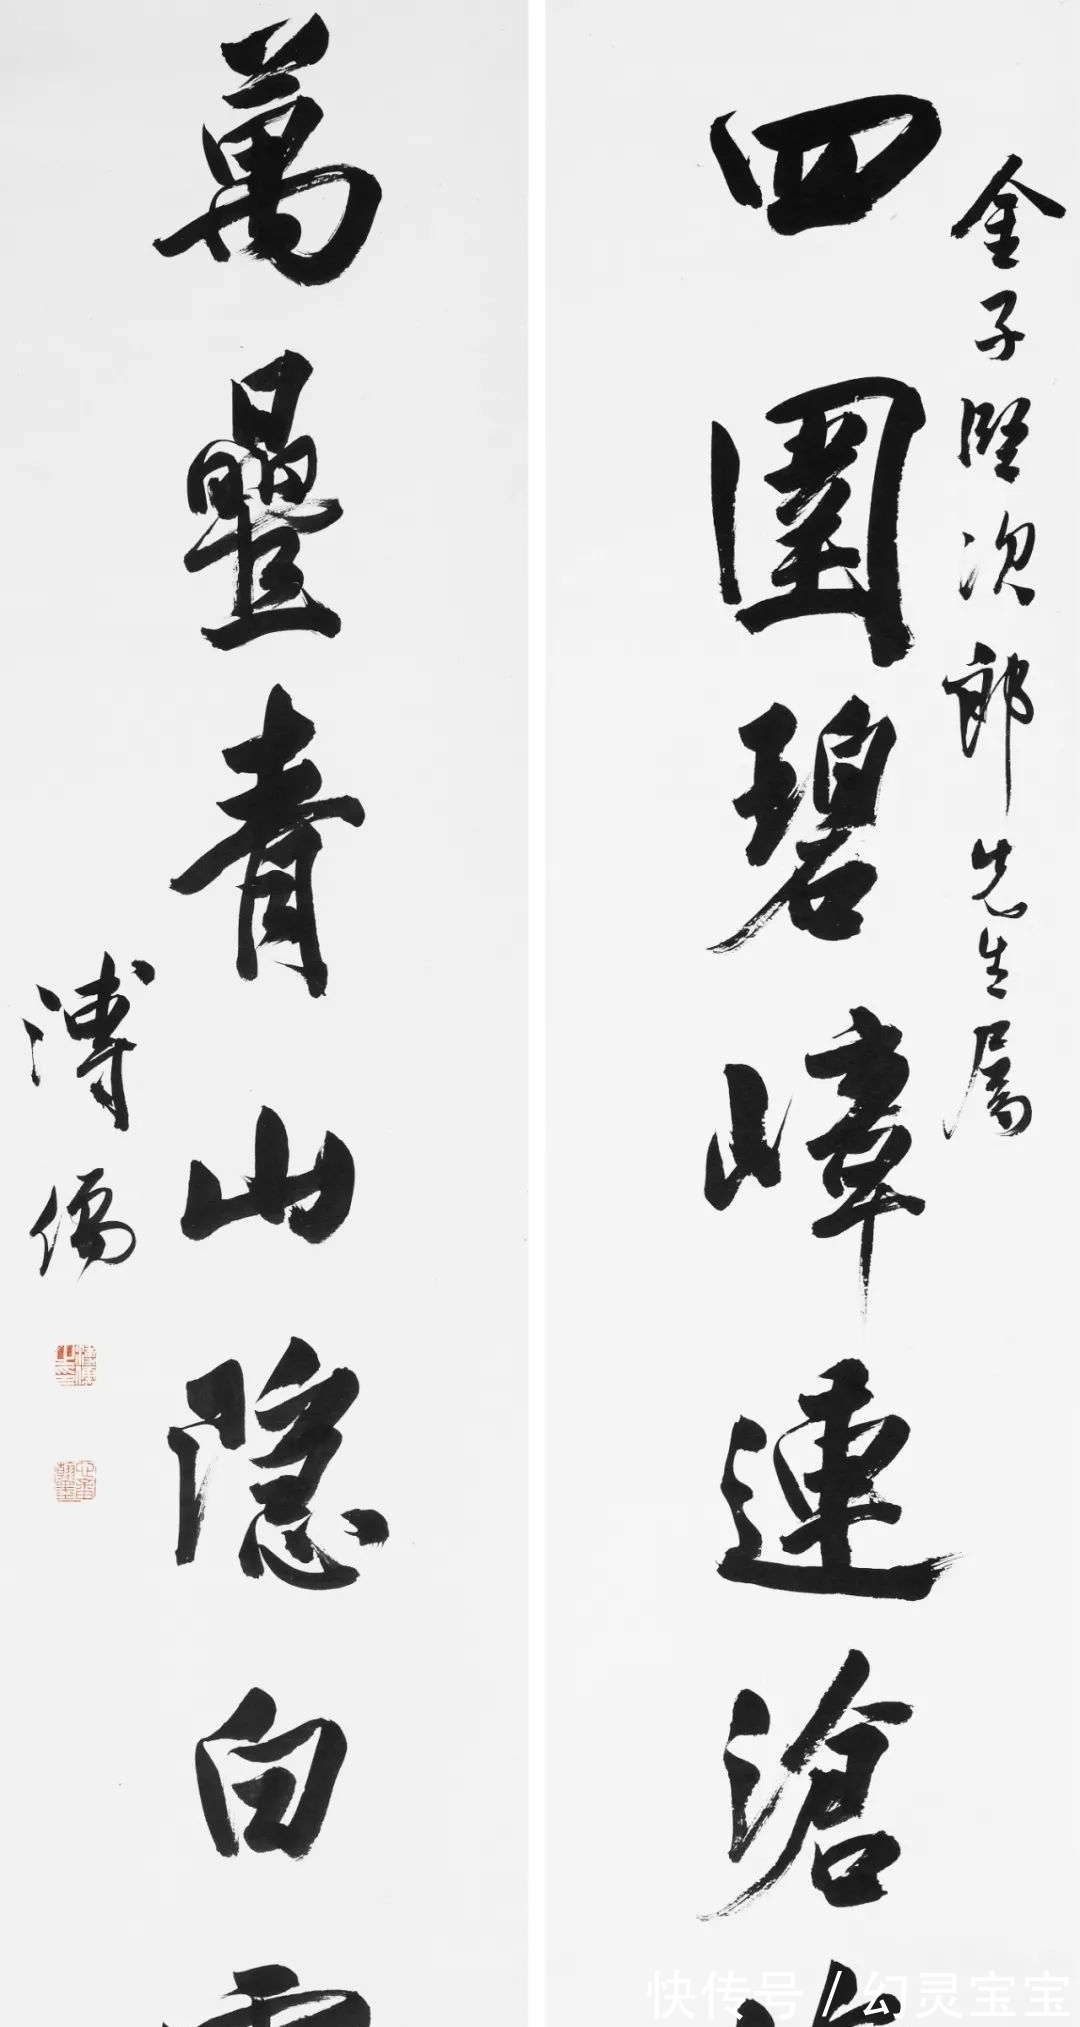 金子堅次郎先生屬
四圍碧嶂連滄
萬疊青山隐白
溥儒
快传号/幻灵宝宝